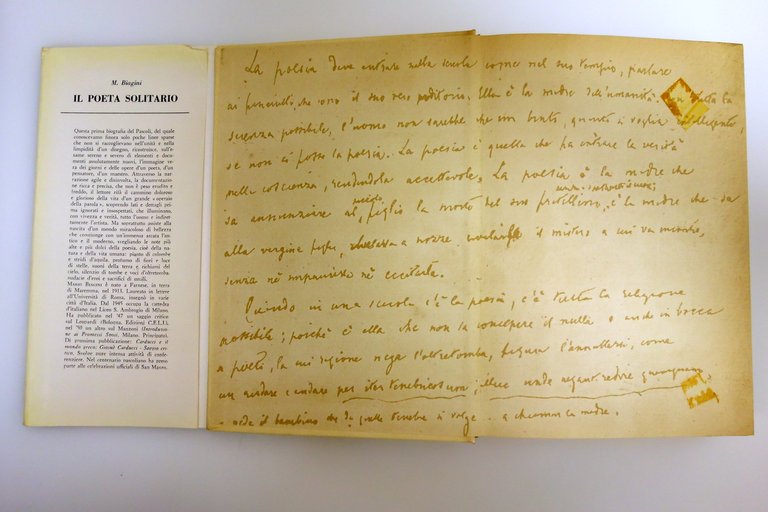 M. Biagini
IL POETA SOLITARIO
Questa prima biografia del Pascoli, del quale
conoscevamo finora solo poche linee sparse
che non si raccoglievano nell'unità e nella
limpidità d'un disegno, ricostruisce, sull'e-
same sereno e severo di elementi e docu-
menti assolutamente nuovi, l'immagine ve-
ra dei giorni e delle opere d'un poeta, d'un
pensatore, d'un maestro. Attraverso la nar-
razione agile e disinvolta, la documentazio-
ne ricca e precisa, che non è peso erudito e
freddo, il lettore rifà il cammino dolente
e glorioso della vita d'un grande « operaio
della parola », scoprendo lati e dettagli pri-
ma ignorati e insospettati, che illuminano,
con vivezza e verità, tutto l'uomo e indiret-
tamente l'artista. Ma soprattutto assiste alla
nascita d'un mondo miracoloso di bellezza
che congiunge con un'immensa arcata l'an-
tico e il moderno, svegliando le note più
alte e più dolci della poesia, cioè della na-
tura e della vita umana: pianto di colombe
e stridi d'aquila, profumo di fiori e luce
di stelle, suoni della terra e richiami del
cielo, silenzio di tombe e voci d'oltretomba,
audacie d'eroi e sacrifici di umili.
MARIO BIAGINI è nato a Farnese, in terra
di Maremma, nel 1913. Laureato in lettere
all'Università di Roma, insegnò in varie
città d'Italia. Dal 1945 occupa la cattedra
d'italiano nel Liceo S. Ambrogio di Milano.
Ha pubblicato nel '47 un saggio critico
sul Leopardi (Bologna, Edizioni C.E.L.I.),
nel '50 un altro sul Manzoni (Introduzio-
ne ai Promessi Sposi, Milano, Principato).
Di prossima pubblicazione: Carducci e il
mondo greco; Giosuè Carducci - Saggio cri-
tico. Svolge pure intensa attività di confe-
renziere. Nel centenario pascoliano ha tenu-
to parte alle celebrazioni ufficiali di San Mauro.
La poesia deve entrare nella scuola come nel suo tempio, parlare
ai fanciulli, che sono il suo vero uditorio. Ella è la madre dell'umanità. Con tutta la
scienza possibile, l'uomo non sarebbe che un bruto, quanto si voglia intelligente,
se non ci fosse la poesia. La poesia è quella che fa entrare la verità
nella coscienza, rendendola accettevole. La poesia è la madre che
sa annunziare al figlio la morte del suo fratellino, è la madre che sa
alla vergine figlia, a nozze, il mistero a cui va incontro,
senza nè impaurirla nè eccitarla.
Quando in una scuola c'è la poesia, c'è tutta la religione
possibile; poichè è ella che non sa concepire il nulla e anche in bocca
a poeti, la cui ragione nega l'oltretomba, figura l'annullarsi, come
un andare e andare per iter tenebricosum; illuc unde negant redire quemquam
vede il bambino che da quelle tenebre si volge.. a chiamar la madre.